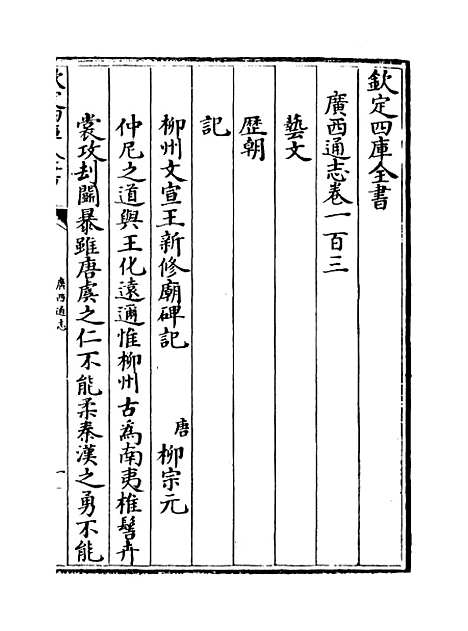 欽定四庫全書
廣西通志卷一百三
藝文
歴朝
記
柳州文宣王新修廟碑記　唐　柳宗元
仲尼之道與王化遠邇惟柳州古為南夷椎髻卉
裳攻刦鬭暴雖唐虞之仁不能柔秦漢之勇不能
廣西通志
一